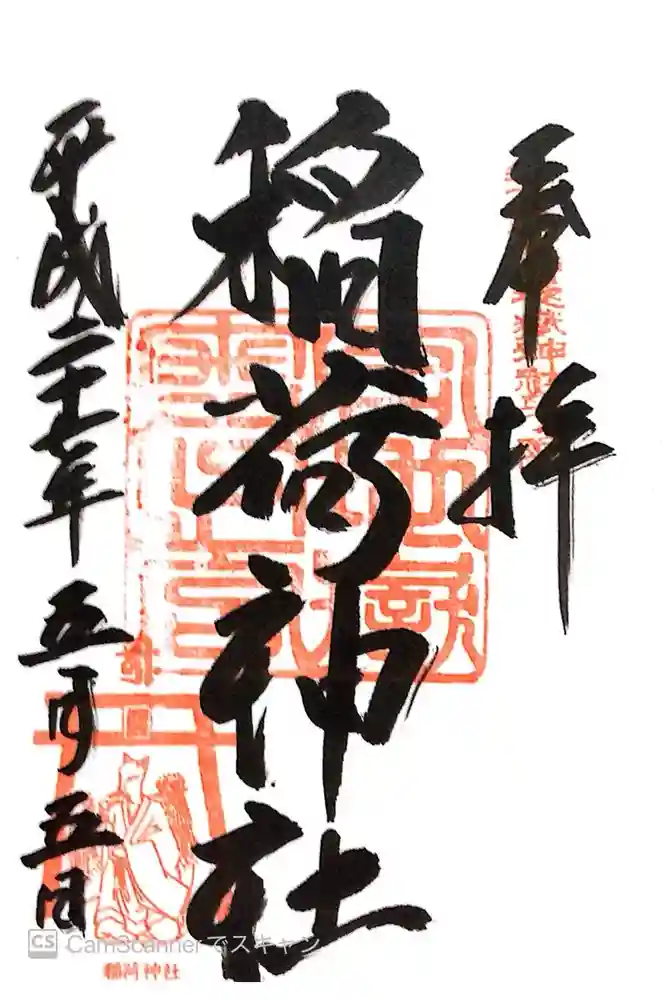 奉拝
稲荷神社
平成二十七年 五月 五日
稲荷神社
CS CamScannerでスキャン